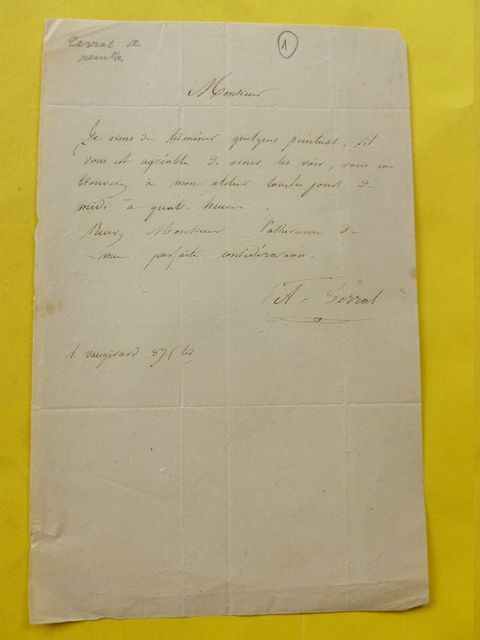 Terrat A
peintre
1
Monsieur
Je viens de terminer quelques peintures, s'il
vous est agréable de venir les voir, vous me
trouverez à mon atelier tous les jours de
midi à quatre heures.
Recevez Monsieur l'assurance de
ma parfaite considération.
A. Terrat
r. vaugirard 87 ter